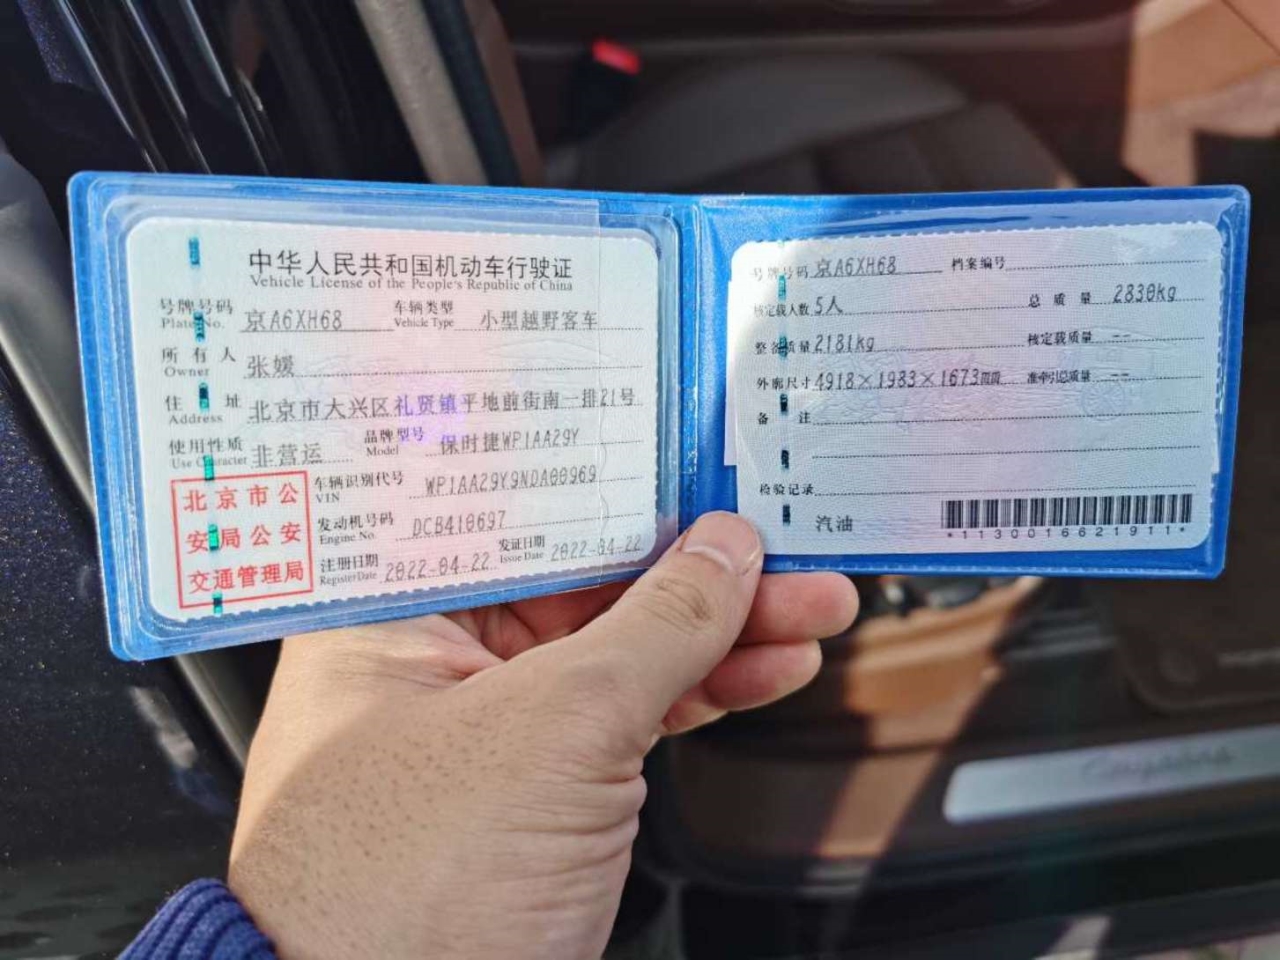 中华人民共和国机动车行驶证
Vehicle License of the People's Republic of China
号牌号码 京A6XH68 车辆类型 小型越野客车
Plate No. Vehicle Type
所有人 张媛
Owner
住址 北京市大兴区礼贤镇平地前街南一排21号
Address
使用性质 非营运 品牌型号 保时捷WP1AA29Y
Use Character Model
北京市公
安局公安
交通管理局
车辆识别代号 WP1AA29Y9NDA00969
VIN
发动机号码 DCB410697
Engine No.
注册日期 2022-04-22 发证日期 2022-04-22
Register Date Issue Date
号牌号码 京A6XH68 档案编号
核定载人数 5人 总质量 2830kg
整备质量 2181kg 核定载质量 --
外廓尺寸 4918×1983×1673mm 准牵引总质量 --
备注
检验记录
汽油
*1130016621911*